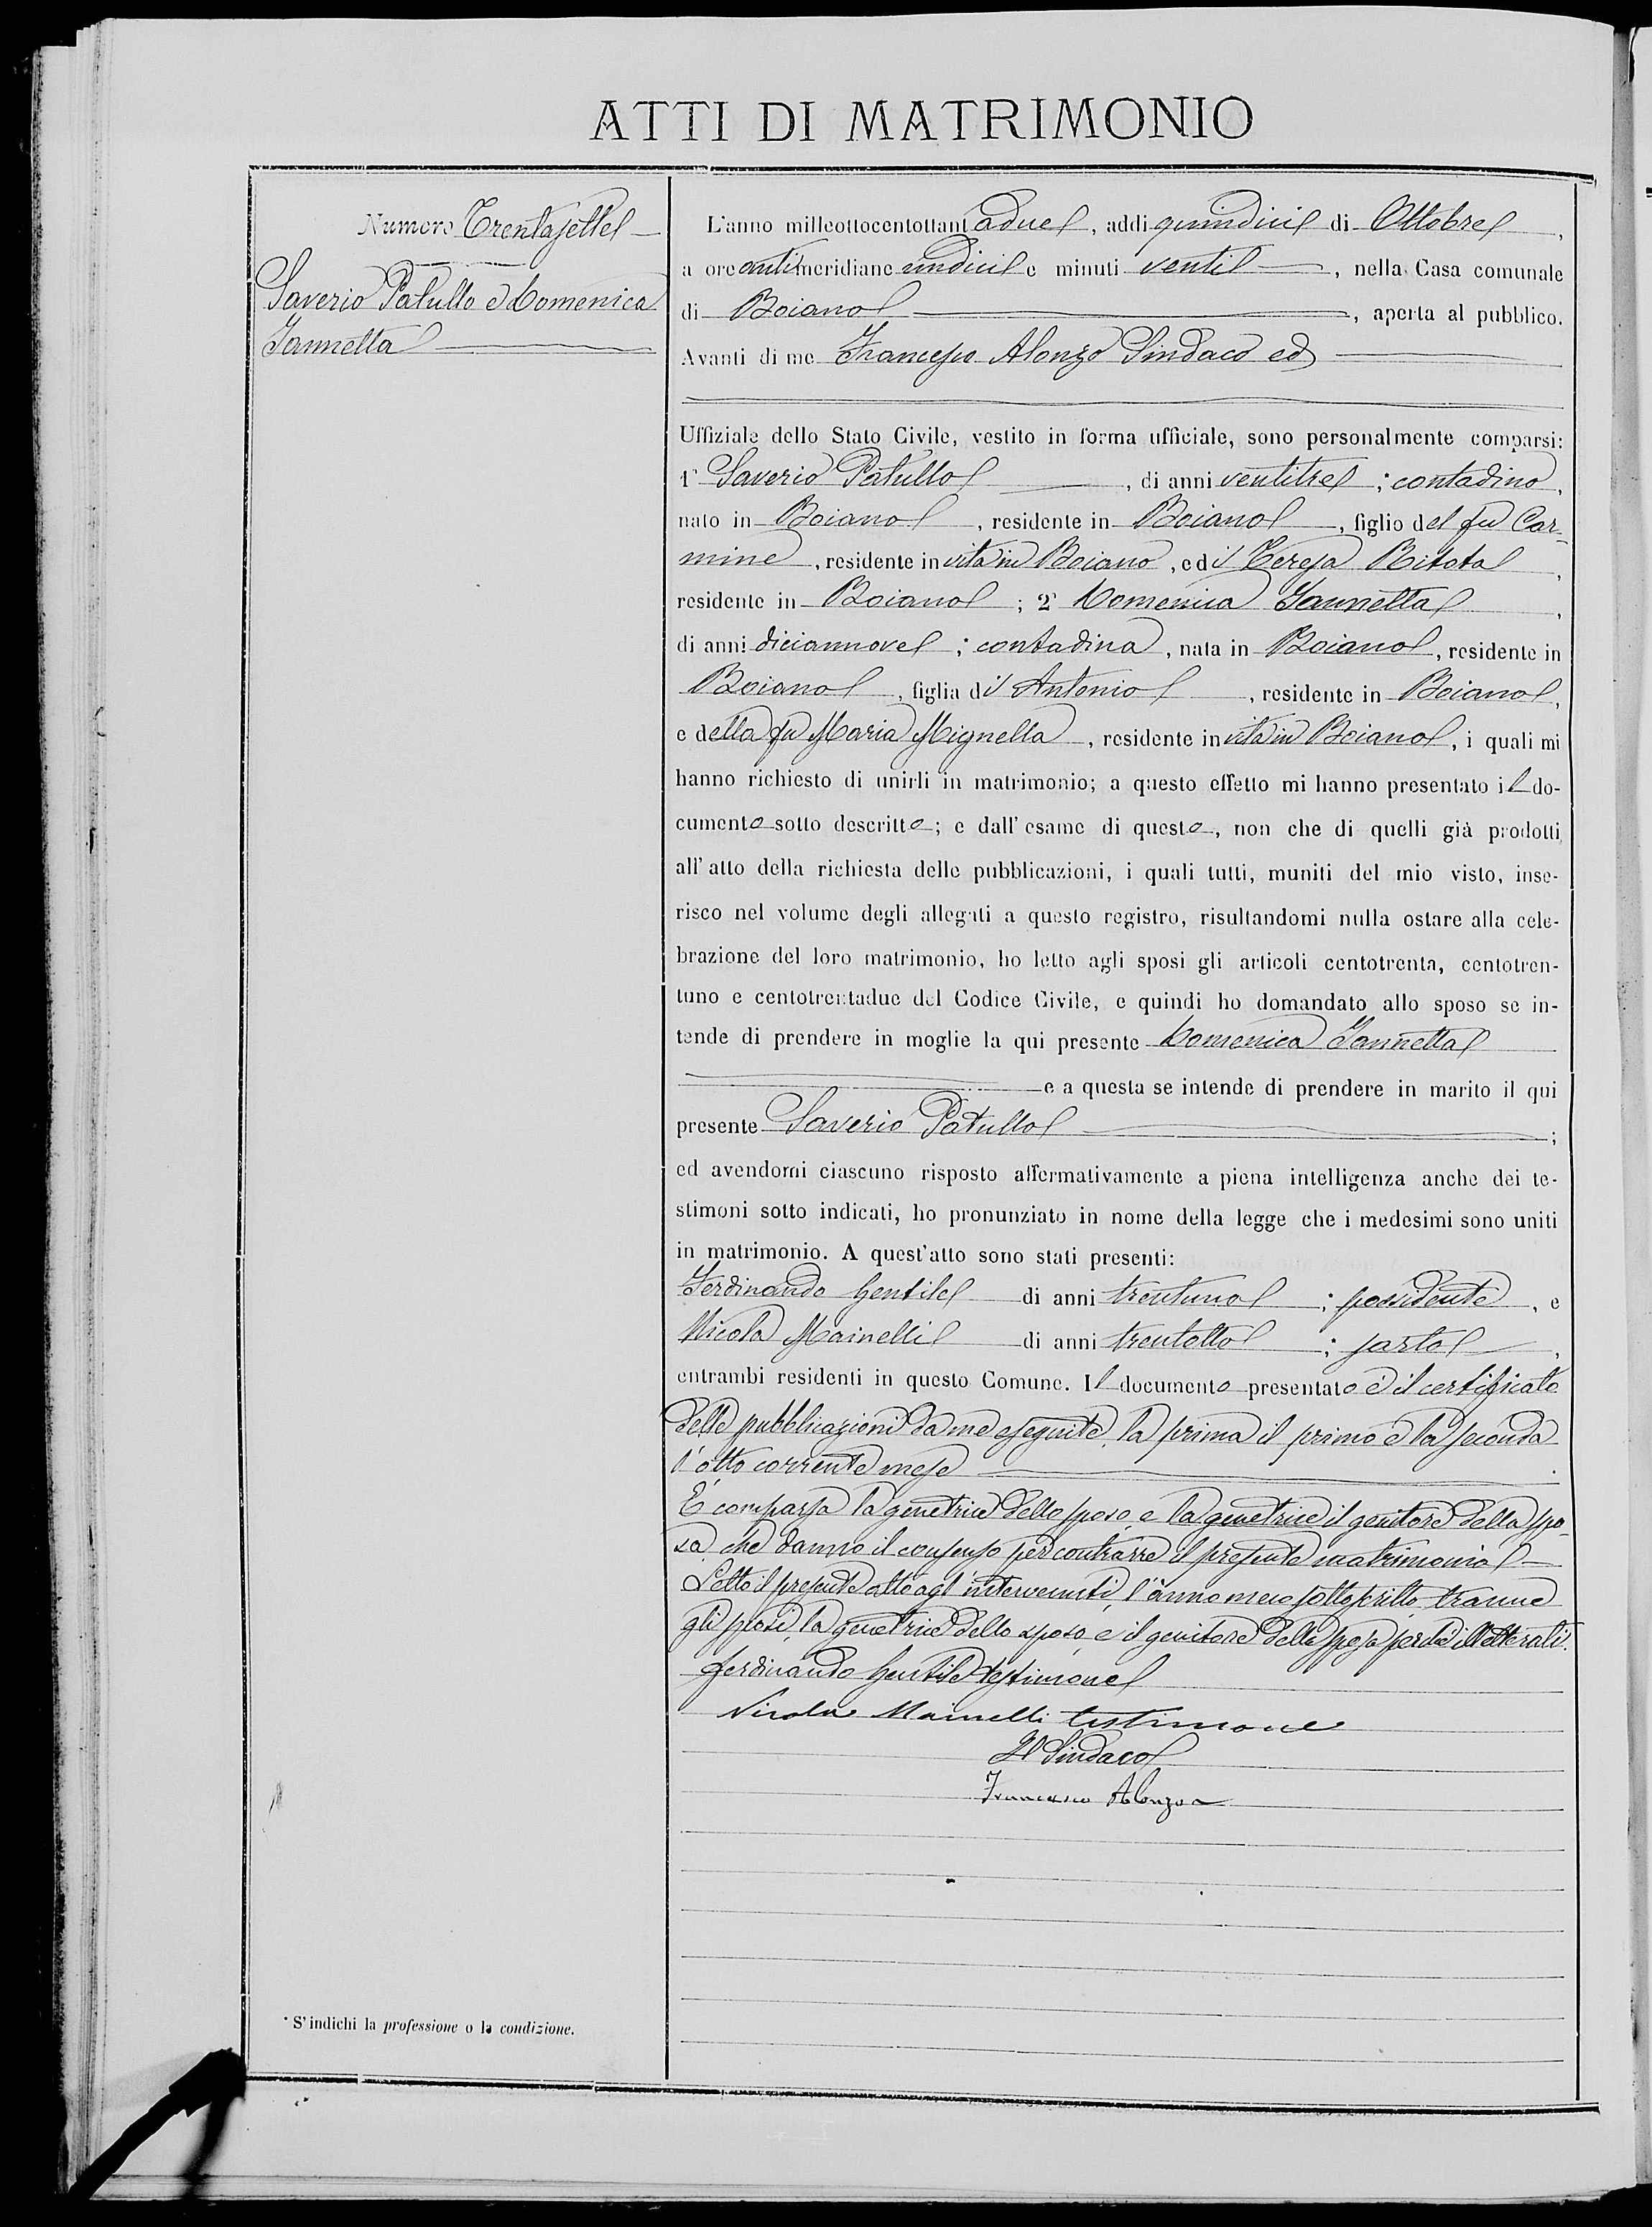 ATTI DI MATRIMONIO
Numero Trentasette
Saverio Patullo e Domenica
Iannetta
L'anno milleottocentottantadue, addì quindici di Ottobre,
a ore antimeridiane undici e minuti venti, nella Casa comunale
di Boiano, aperta al pubblico.
Avanti di me Francesco Alonzo Sindaco ed
Uffiziale dello Stato Civile, vestito in forma ufficiale, sono personalmente comparsi:
1° Saverio Patullo, di anni ventitre; contadino,
nato in Boiano, residente in Boiano, figlio del fu Car-
mine, residente in vita in Boiano, e di Teresa
residente in Boiano; 2° Domenica Iannetta,
di anni diciannove; contadina, nata in Boiano, residente in
Boiano, figlia di Antonio, residente in Boiano,
e della fu Maria Mignella, residente in vita in Boiano, i quali mi
hanno richiesto di unirli in matrimonio; a questo effetto mi hanno presentato il do-
cumento sotto descritto; e dall'esame di questo, non che di quelli già prodotti
all'atto della richiesta delle pubblicazioni, i quali tutti, muniti del mio visto, inse-
risco nel volume degli allegati a questo registro, risultandomi nulla ostare alla cele-
brazione del loro matrimonio, ho letto agli sposi gli articoli centotrenta, centotren-
tuno e centotrentadue del Codice Civile, e quindi ho domandato allo sposo se in-
tende di prendere in moglie la qui presente Domenica Iannetta
e a questa se intende di prendere in marito il qui
presente Saverio Patullo;
ed avendomi ciascuno risposto affermativamente a piena intelligenza anche dei te-
stimoni sotto indicati, ho pronunziato in nome della legge che i medesimi sono uniti
in matrimonio. A quest'atto sono stati presenti:
Ferdinando Gentile di anni trentuno; possidente, e
Nicola Mainelli di anni trentotto; sarto,
entrambi residenti in questo Comune. Il documento presentato è il certificato
delle pubblicazioni da me eseguite, la prima il primo e la seconda
l'otto corrente mese.
È comparsa la genetrice dello sposo, e la genetrice il genitore della spo-
sa, che danno il consenso per contrarre il presente matrimonio
Letto il presente atto agl'intervenuti, l'anno meco sottoscritto, tranne
gli sposi, la genetrice dello sposo, e il genitore della sposa perchè illetterati.
Ferdinando Gentile testimone
Nicola Mainelli testimone
Il Sindaco
Francesco Alonzo
* S'indichi la professione o la condizione.